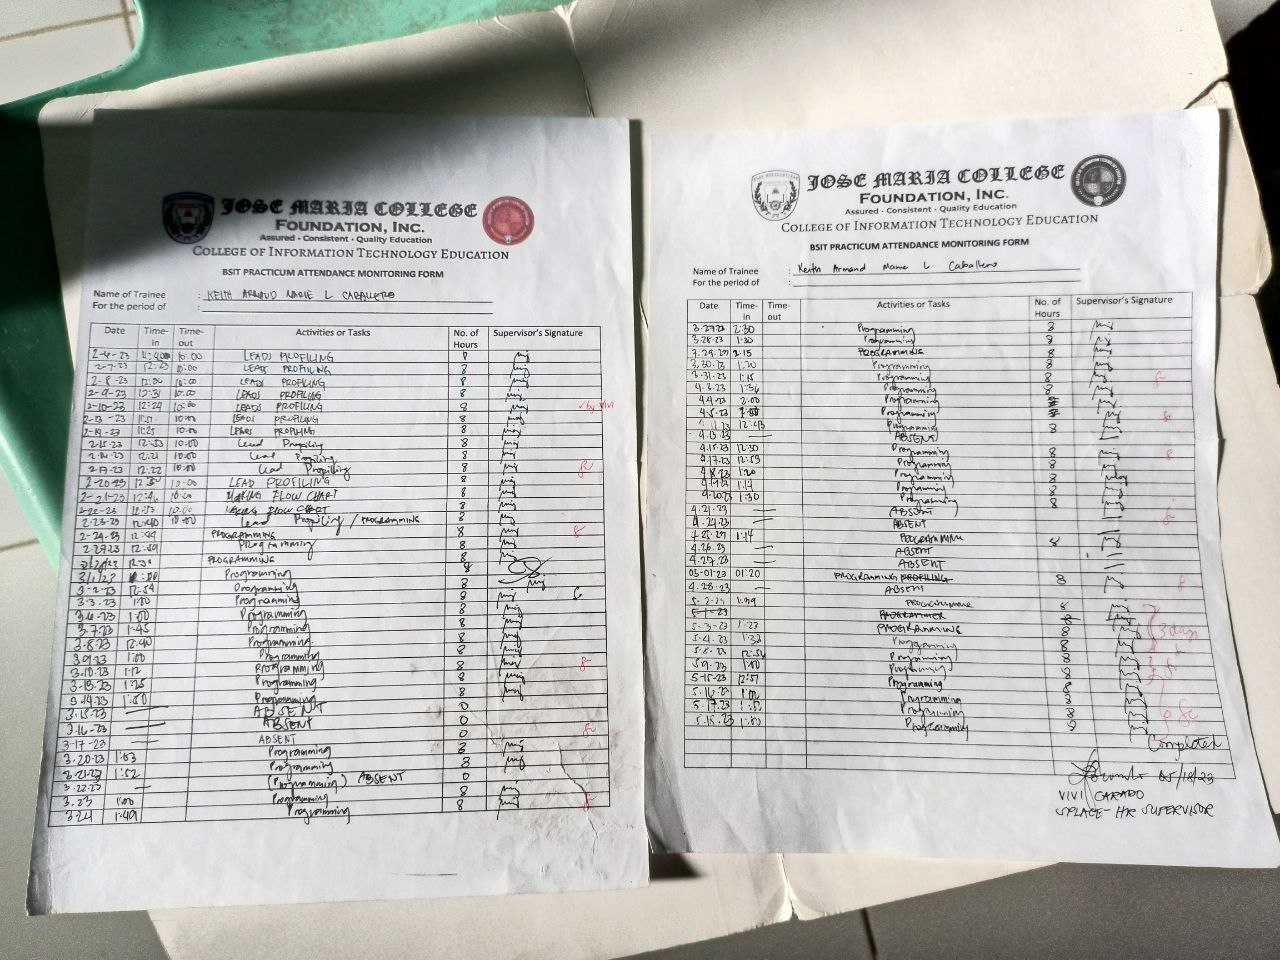 JOSE MARIA COLLEGE
FOUNDATION, INC.
Assured - Consistent - Quality Education
COLLEGE OF INFORMATION TECHNOLOGY EDUCATION
BSIT PRACTICUM ATTENDANCE MONITORING FORM
Name of Trainee : KEITH ARMAND MARIE L CABALLERO
For the period of :
Date Time-in Time-out Activities or Tasks No. of Hours Supervisor's Signature
2-6-23 11:40 10:00 LEADS PROFILING 8
2-7-23 10:00 LEAD PROFILING 8
2-8-23 10:00 LEADS PROFILING 8
2-9-23 12:31 10:00 LEADS PROFILING 8
2-10-23 12:29 10:00 LEADS PROFILING 8
2-13-23 10:00 LEADS PROFILING 8
10:00 LEADS PROFILING 8
2-15-23 12:53 10:00 Lead Profiling 8
12:21 10:00 Lead Profiling 8
2-17-23 12:22 10:00 Lead Profiling 8
2-20-23 10:00 LEAD PROFILING 8
2-21-23 10:00 MAKING FLOW CHART 8
2-22-23 10:00 MAKING FLOW CHART 8
2-23-23 12:40 10:00 Lead Profiling / PROGRAMMING 8
2-24-23 PROGRAMMING 8
2-27-23 Programming 8
PROGRAMMING 8
3/1/23 Programming 8
3-2-23 12:54 Programming 8
3-3-23 1:00 Programming 8
3-6-23 1:00 Programming 8
3-7-23 1:45 Programming 8
3-8-23 12:40 Programming 8
3-9-23 1:00 Programming 8
3-10-23 1:12 Programming 8
3-13-23 1:25 Programming 8
3-14-23 1:50 Programming 8
3-15-23 ABSENT 0
3-16-23 ABSENT 0
3-17-23 ABSENT 0
3-20-23 1:03 Programming 8
3-21-23 1:52 Programming 8
3-22-23 (Programming) ABSENT 0
3-23 1:00 Programming 8
3-24 1:49 Programming 8
JOSE MARIA COLLEGE
FOUNDATION, INC.
Assured - Consistent - Quality Education
COLLEGE OF INFORMATION TECHNOLOGY EDUCATION
BSIT PRACTICUM ATTENDANCE MONITORING FORM
Name of Trainee : Keith Armand Marie L. Caballero
For the period of :
Date Time-in Time-out Activities or Tasks No. of Hours Supervisor's Signature
3-27-23 2:30 Programming 8
3-28-23 1:30 Programming 8
2:15 PROGRAMMING 8
3-30-23 1:30 Programming 8
3-31-23 1:15 Programming 8
4-3-23 1:36 Programming 8
4-4-23 2:00 Programming 8
4-5-23 Programming 8
12:43 Programming 8
4-13-23 ABSENT
12:30 Programming 8
4-17-23 12:53 Programming 8
4-18-23 1:20 Programming 8
4-19-23 1:14 Programming 8
4-20-23 1:30 Programming 8
4-21-23 ABSENT
4-24-23 ABSENT
1:14 PROGRAMMING 8
4-26-23 ABSENT
4-27-23 ABSENT
05-01-23 01:20 PROGRAMMING PROFILING 8
4-28-23 ABSENT
5-2-23 8
5-3-23 1:23 PROGRAMMING 8
5-4-23 1:32 Programming 8
5-8-23 Programming 8
5-9-23 1:00 Programming 8
5-15-23 12:57 Programming 8
5-16-23 Programming 8
5-17-23 Programming 8
Programming 8
Completed
05/18/23
VIVI CARADO
SPLACE- HR SUPERVISOR